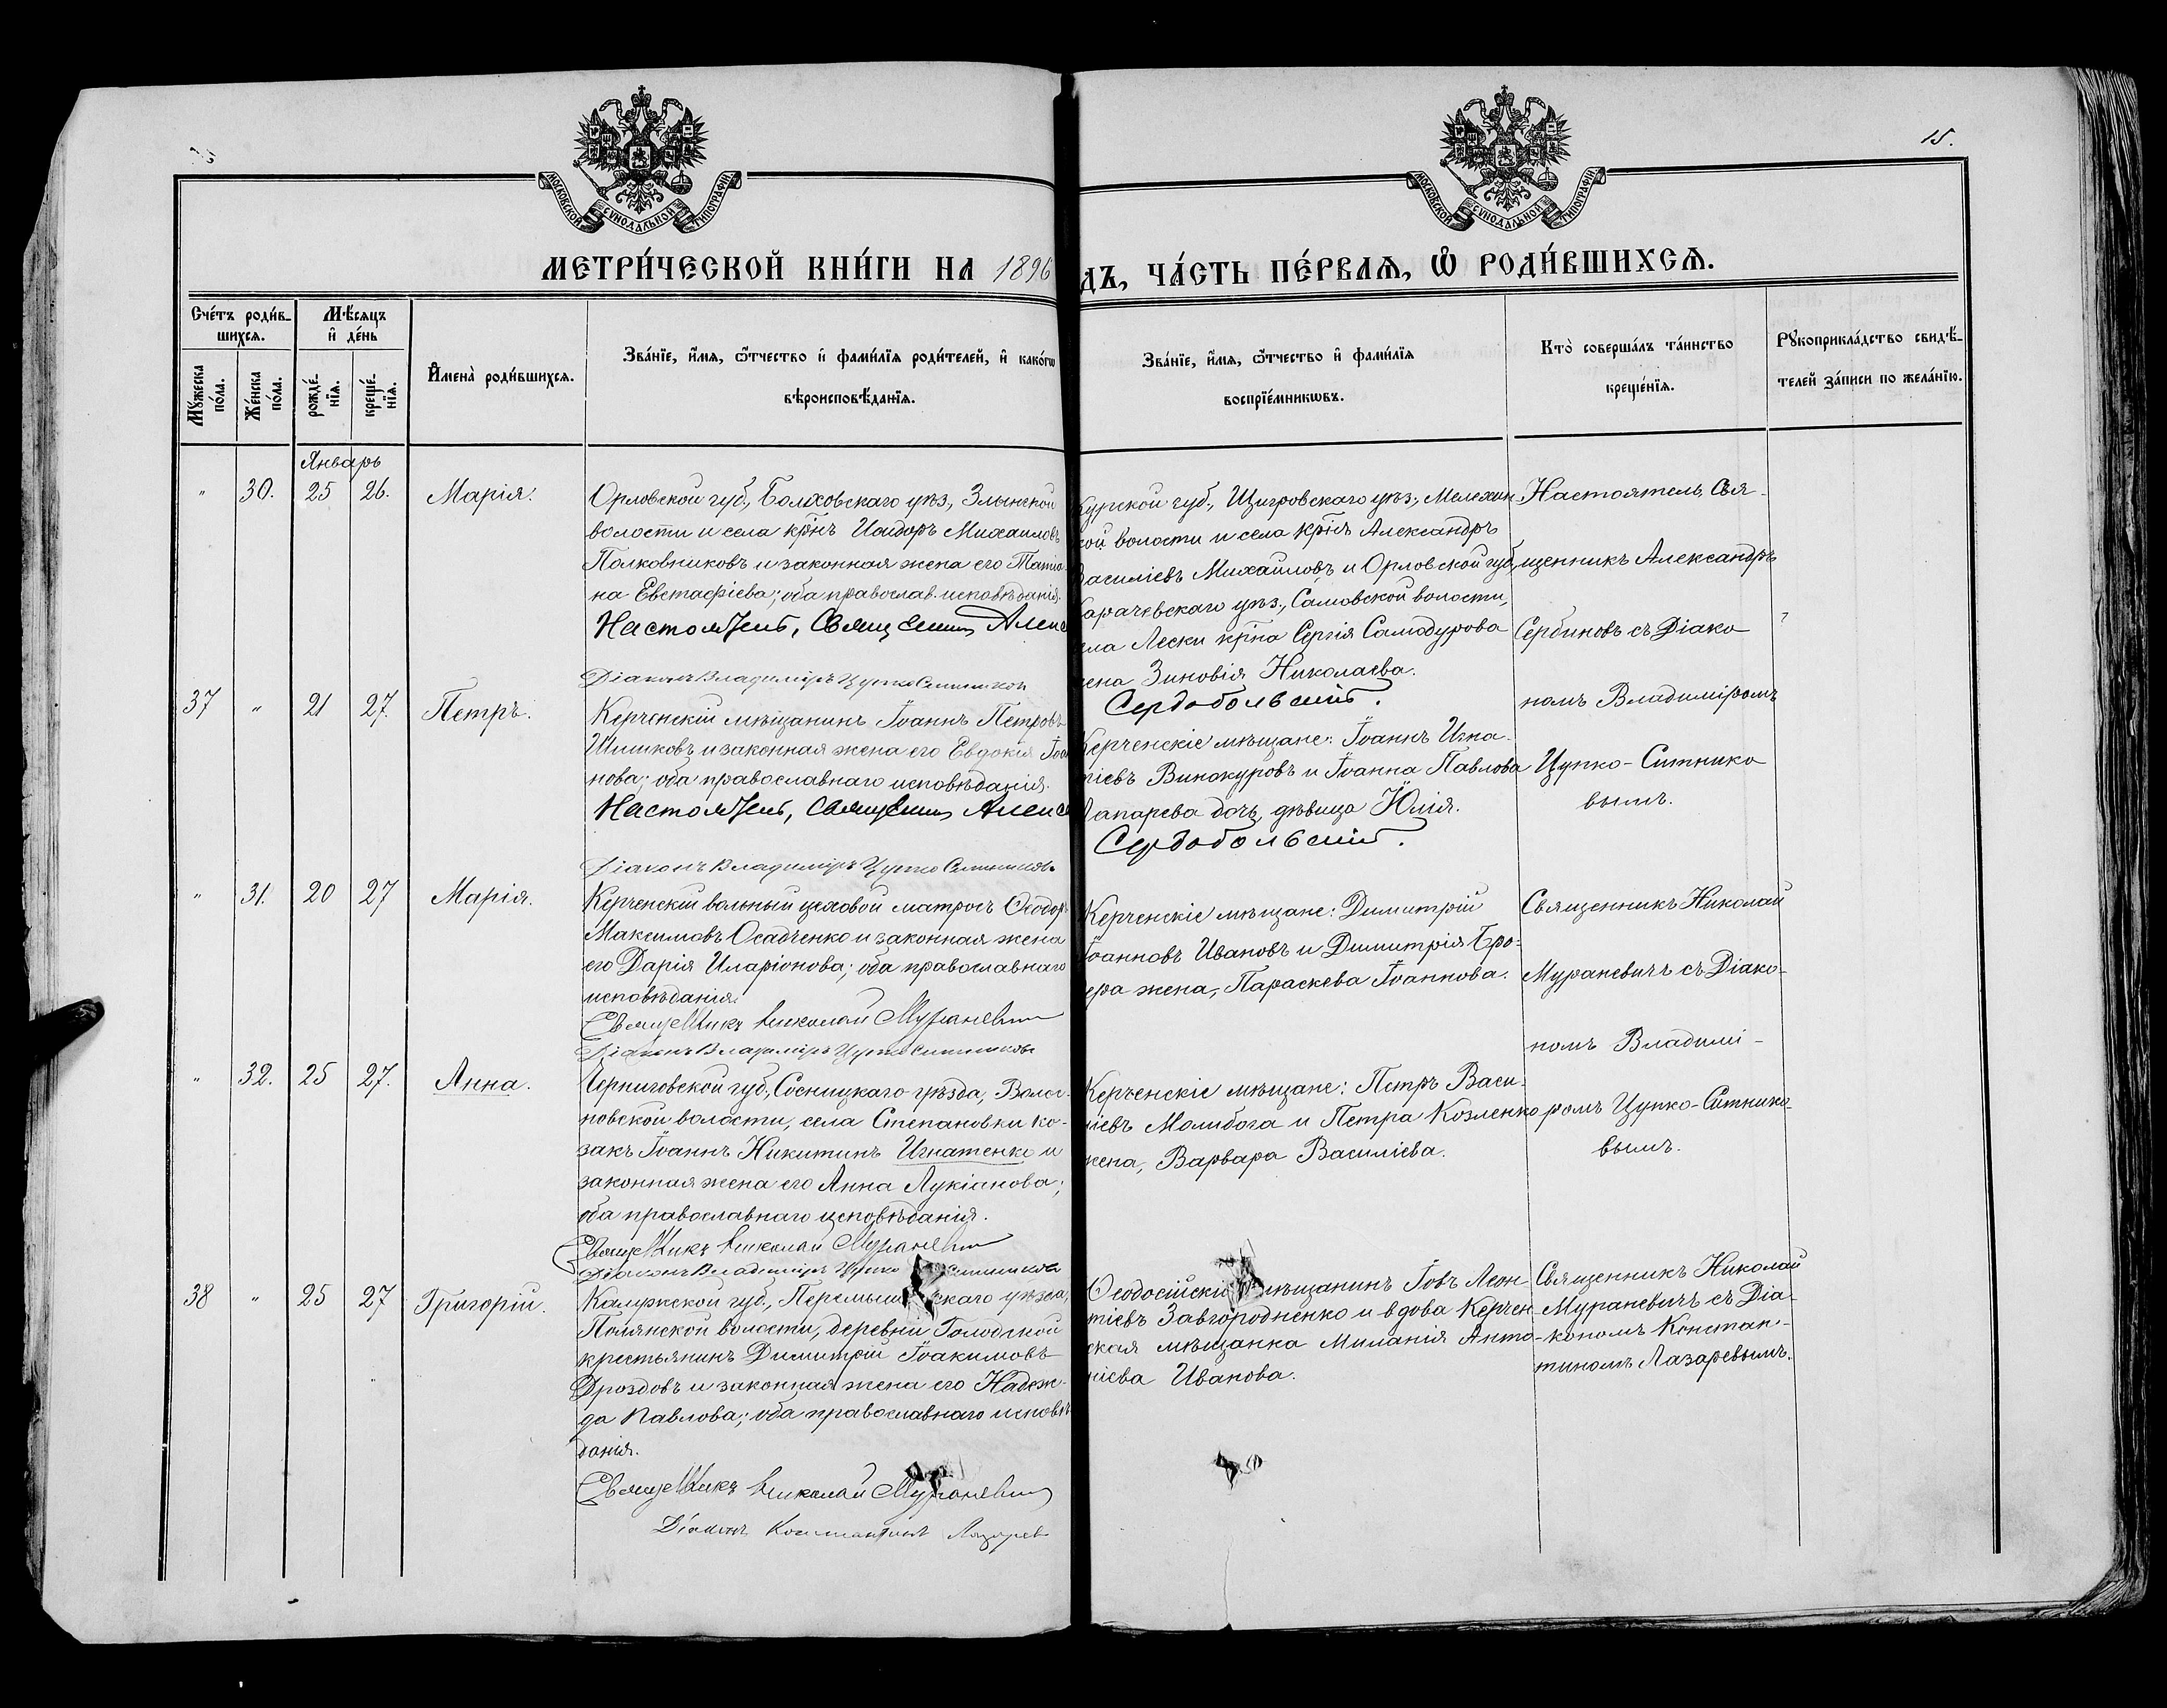 15.
МОСКОВСКОЙ СѴНОДАЛЬНОЙ ТИПОГРАФІИ
МОСКОВСКОЙ СѴНОДАЛЬНОЙ ТИПОГРАФІИ
МЕТРИ́ЧЕСКОЙ КНИ́ГИ НА 1896
ДЪ, ЧА́СТЬ ПЕ́РВАѦ, Ѡ҆ РОДИ́ВШИХСѦ.
Сче́тъ роди́в-
шихсѧ.
Мꙋ́жеска по́ла.
Же́нска по́ла.
Мѣ́сѧцъ
и҆ де́нь
рожде́-
нїѧ.
креще́-
нїѧ.
И҆мена̀ роди́вшихсѧ.
Зва́нїе, и҆́мѧ, ѻ҆́тчество и҆ фами́лїѧ роди́телей, и҆ како́гѡ
вѣроисповѣ́данїѧ.
Зва́нїе, и҆́мѧ, ѻ҆́тчество и҆ фами́лїѧ
воспрїе́мникѡвъ.
Кто̀ соверша́лъ та́инство
креще́нїѧ.
Рꙋкоприкла́дство свидѣ́-
телей за́писи по жела́нїю.
Январь
" 30. 25 26. Марія.
Орловской губ., Болховскаго уѣз., Злынской
волости и села кр̃нъ Исидоръ Михаиловъ
Полковниковъ и законная жена его Татіа-
на Евстафіева; оба православ. исповѣданія.
Настоятель, Священникъ Алекс
Діаконъ Владиміръ Цупко Ситников
Курской губ., Щигровскаго уѣз., Мелехин
кой волости и села кр̃нъ Александръ
Василіевъ Михаиловъ и Орловской губ,
Карачевскаго уѣз., Самовской волости,
ела Лески кр̃на Сергія Самодурова
жена Зиновія Николаева.
Сердобольскій.
Настоятель, Свя-
щенникъ Александръ
Сербиновъ съ Діако
номъ Владиміромъ
Цупко-Ситнико
вымъ.
37 " 21 27. Петръ.
Керченскій мѣщанинъ Іоаннъ Петровъ
Шишковъ и законная жена его Евдокія Іоан
нова; оба православнаго исповѣданія.
Настоятель, Священникъ Алекс
Діаконъ Владиміръ Цупко Ситниковъ
Керченскіе мѣщане: Іоаннъ Игна-
тіевъ Винокуровъ и Іоанна Павлова
Лапарева дочь, дѣвица Юлія.
Сердобольскій.
" 31. 20 27 Марія.
Керченскій вольный цеховой матросъ Ѳеодоръ
Максимовъ Осадченко и законная жена
его Дарія Иларіонова; оба православнаго
исповѣданія.
Священникъ Николай Мураневич
Діаконъ Владиміръ Цупко Ситниковъ
Керченскіе мѣщане: Димитрій
Іоанновъ Ивановъ и Димитрія Бро-
ера жена, Параскева Іоаннова.
Священникъ Николай
Мураневичъ съ Діако-
номъ Владимі-
ромъ Цупко-Ситнико-
вымъ.
" 32. 25 27. Анна.
Черниговской губ., Сосницкаго уѣзда, Волос-
новской волости, села Степановки ко-
закъ Іоаннъ Никитинъ Игнатенко и
законная жена его Анна Лукіанова;
оба православнаго исповѣданія.
Священникъ Николай Мураневич
Діаконъ Владиміръ Цупко Ситников
Керченскіе мѣщане: Петръ Васи-
ліевъ Молибога и Петра Козленко
жена, Варвара Василіева.
38 " 25 27 Григорій.
Калужской губ., Перемышльскаго уѣзда,
Полянской волости, деревни Голодской
крестьянинъ Димитрій Іоакимовъ
Дроздовъ и законная жена его Надеж-
да Павлова; оба православнаго исповѣ
данія.
Священникъ Николай Мураневич
Діаконъ Константинъ Лазарев
Ѳеодосійскій мѣщанинъ Іовъ Леон-
тіевъ Завгородненко и вдова Керчен-
ская мѣщанка Миланія Анто-
ніева Иванова.
Священникъ Николай
Мураневичъ съ Діа-
кономъ Констан-
тиномъ Лазаревымъ.